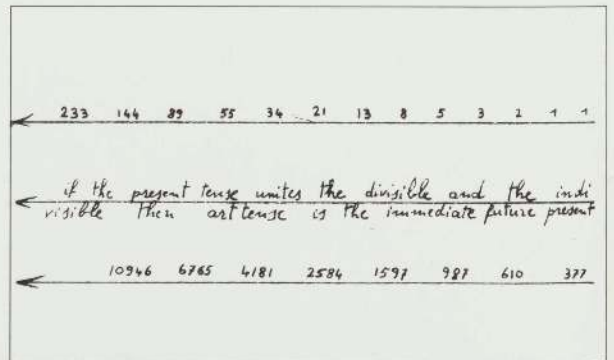 233 144 89 55 34 21 13 8 5 3 2 1 1
if the present tense unites the divisible and the indi
visible then art tense is the immediate future present
10946 6765 4181 2584 1597 987 610 377